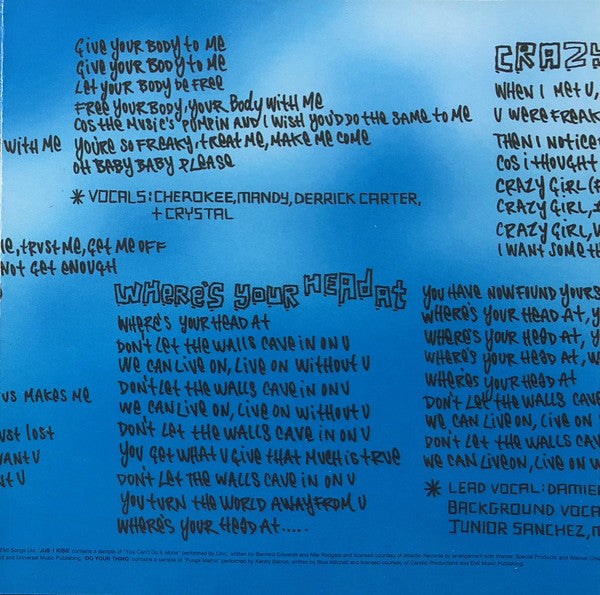 Give your body to me
Give your body to me
Let your body be free
Free your body, your body with me
Cos the music's pumpin and i wish you'd do the same to me
with me
You're so freaky, treat me, make me come
Oh baby baby please
* VOCALS: CHEROKEE, MANDY, DERRICK CARTER,
+ CRYSTAL
me, trust me, get me off
not get enough
us makes me
ust lost
want u
t u
Where's your head at
Where's your head at
Don't let the walls cave in on u
We can live on, live on without u
Don't let the walls cave in on u
We can live on, live on without u
Don't let the walls cave in on u
You get what u give that much is true
Don't let the walls cave in on u
You turn the world away from u
Where's your head at.....
CRAZY
When i met u,
u were freak
Then i notice
Cos i thought
Crazy girl (
Crazy girl,
Crazy girl,
I want some th
You have now found yours
Where's your head at, y
Where's your head at, y
Where's your head at, w
Where's your head at
Don't let the walls cave
We can live on, live on
Don't let the walls cave
We can live on, live on w
* LEAD VOCAL: DAMIE
BACKGROUND VOCA
JUNIOR SANCHEZ, M
EMI Songs Ltd. 'JUS 1 KISS' contains a sample of "You Can't Do It Alone" performed by Chic, written by Bernard Edwards and Nile Rodgers and licensed courtesy of Atlantic Records by arrangement with Warner Special Products and Warner Ch
and Universal Music Publishing. 'DO YOUR THING' contains a sample of "Fungii Mama" performed by Kenny Barron, written by Blue Mitchell and licensed courtesy of Candid Productions and EMI Music Publishing.